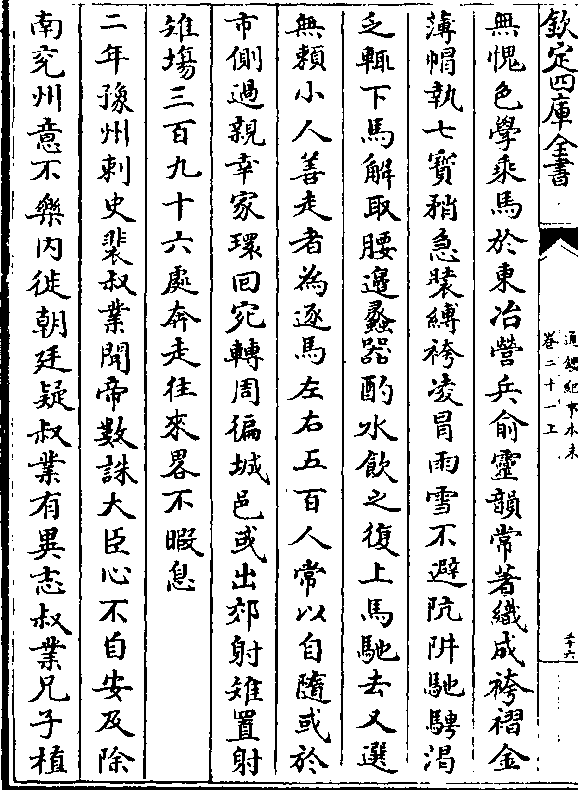 欽定四庫全書
通鑑紀事本末
卷二十一上
三十六
無愧色學乘馬於東冶營兵俞靈韻常著織成袴褶金
薄帽執七寶矟急裝縛袴凌冒雨雪不避阬阱馳騁渴
乏輒下馬解取腰邊蠡器酌水飲之復上馬馳去又選
無賴小人善走者為逐馬左右五百人常以自隨或於
市側過親幸家環回宛轉周徧城邑或出郊射雉置射
雉場三百九十六處奔走往來畧不暇息
二年豫州刺史裴叔業聞帝數誅大臣心不自安及除
南兖州意不樂内徙朝廷疑叔業有異志叔業兄子植